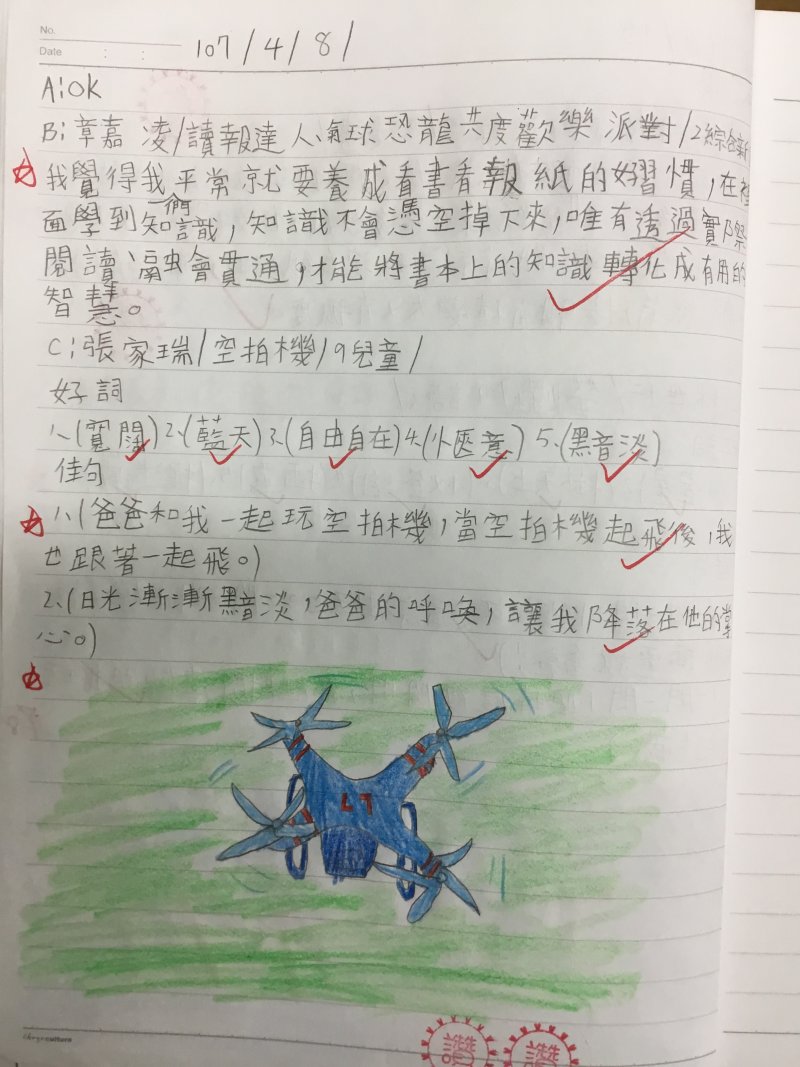 No.
Date : : 107/4/8/
A:OK
B:章嘉凌/讀報達人氣球恐龍共度歡樂派對/2綜合新
我覺得我平常就要養成看書看報紙的好習慣,在裡
面學到知識,知識不會憑空掉下來,唯有透過實際
們
閱讀、融會貫通,才能將書本上的知識轉化成有用的
智慧。
C:張家瑞/空拍機/9兒童/
好詞
1、(寬闊)2、(藍天)3、(自由自在)4、(愜意)5、(黯淡)
佳句
1、(爸爸和我一起玩空拍機,當空拍機起飛後,我
也跟著一起飛。)
2、(日光漸漸黯淡,爸爸的呼喚,讓我降落在他的掌
心。)
L7
讚 讚